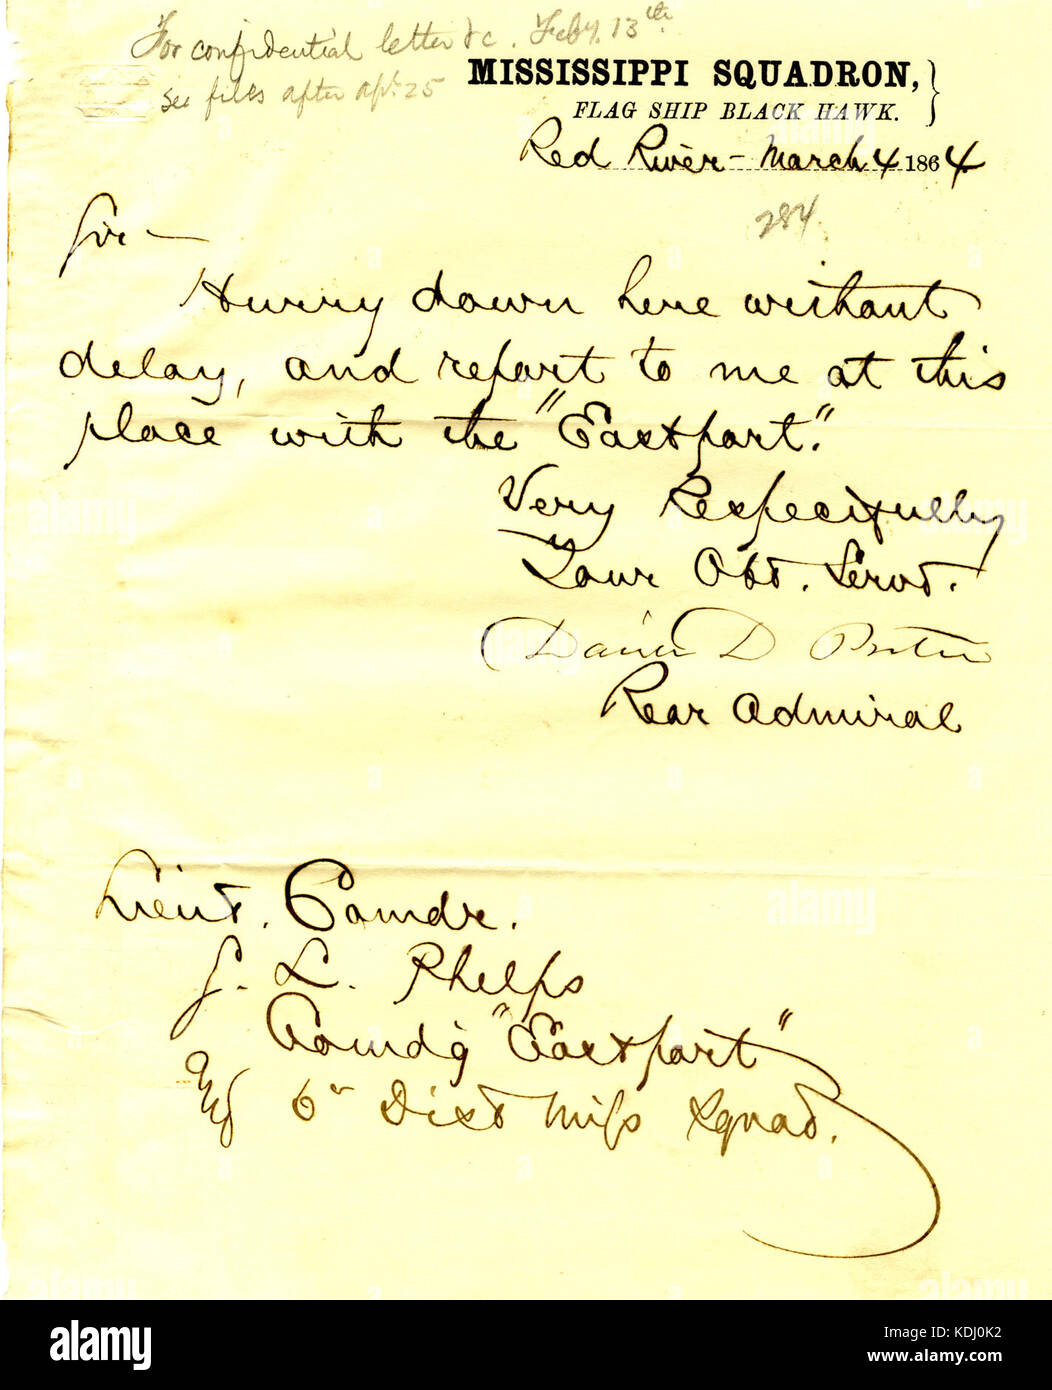 For confidential letter &c. Feby. 13th
see files after Apl. 25
MISSISSIPPI SQUADRON,
FLAG SHIP BLACK HAWK.
Red River - March 4 1864.
284
Sir -
Hurry down here without
delay, and report to me at this
place with the "Eastport."
Very Respectfully
Your Obt. Servt.
David D Porter
Rear Admiral
Lieut. Comdr.
S. L. Phelps
Comdg "Eastport"
and 6th Dist Miss Squad.
alamy
Image ID: KDJ0K2
www.alamy.com